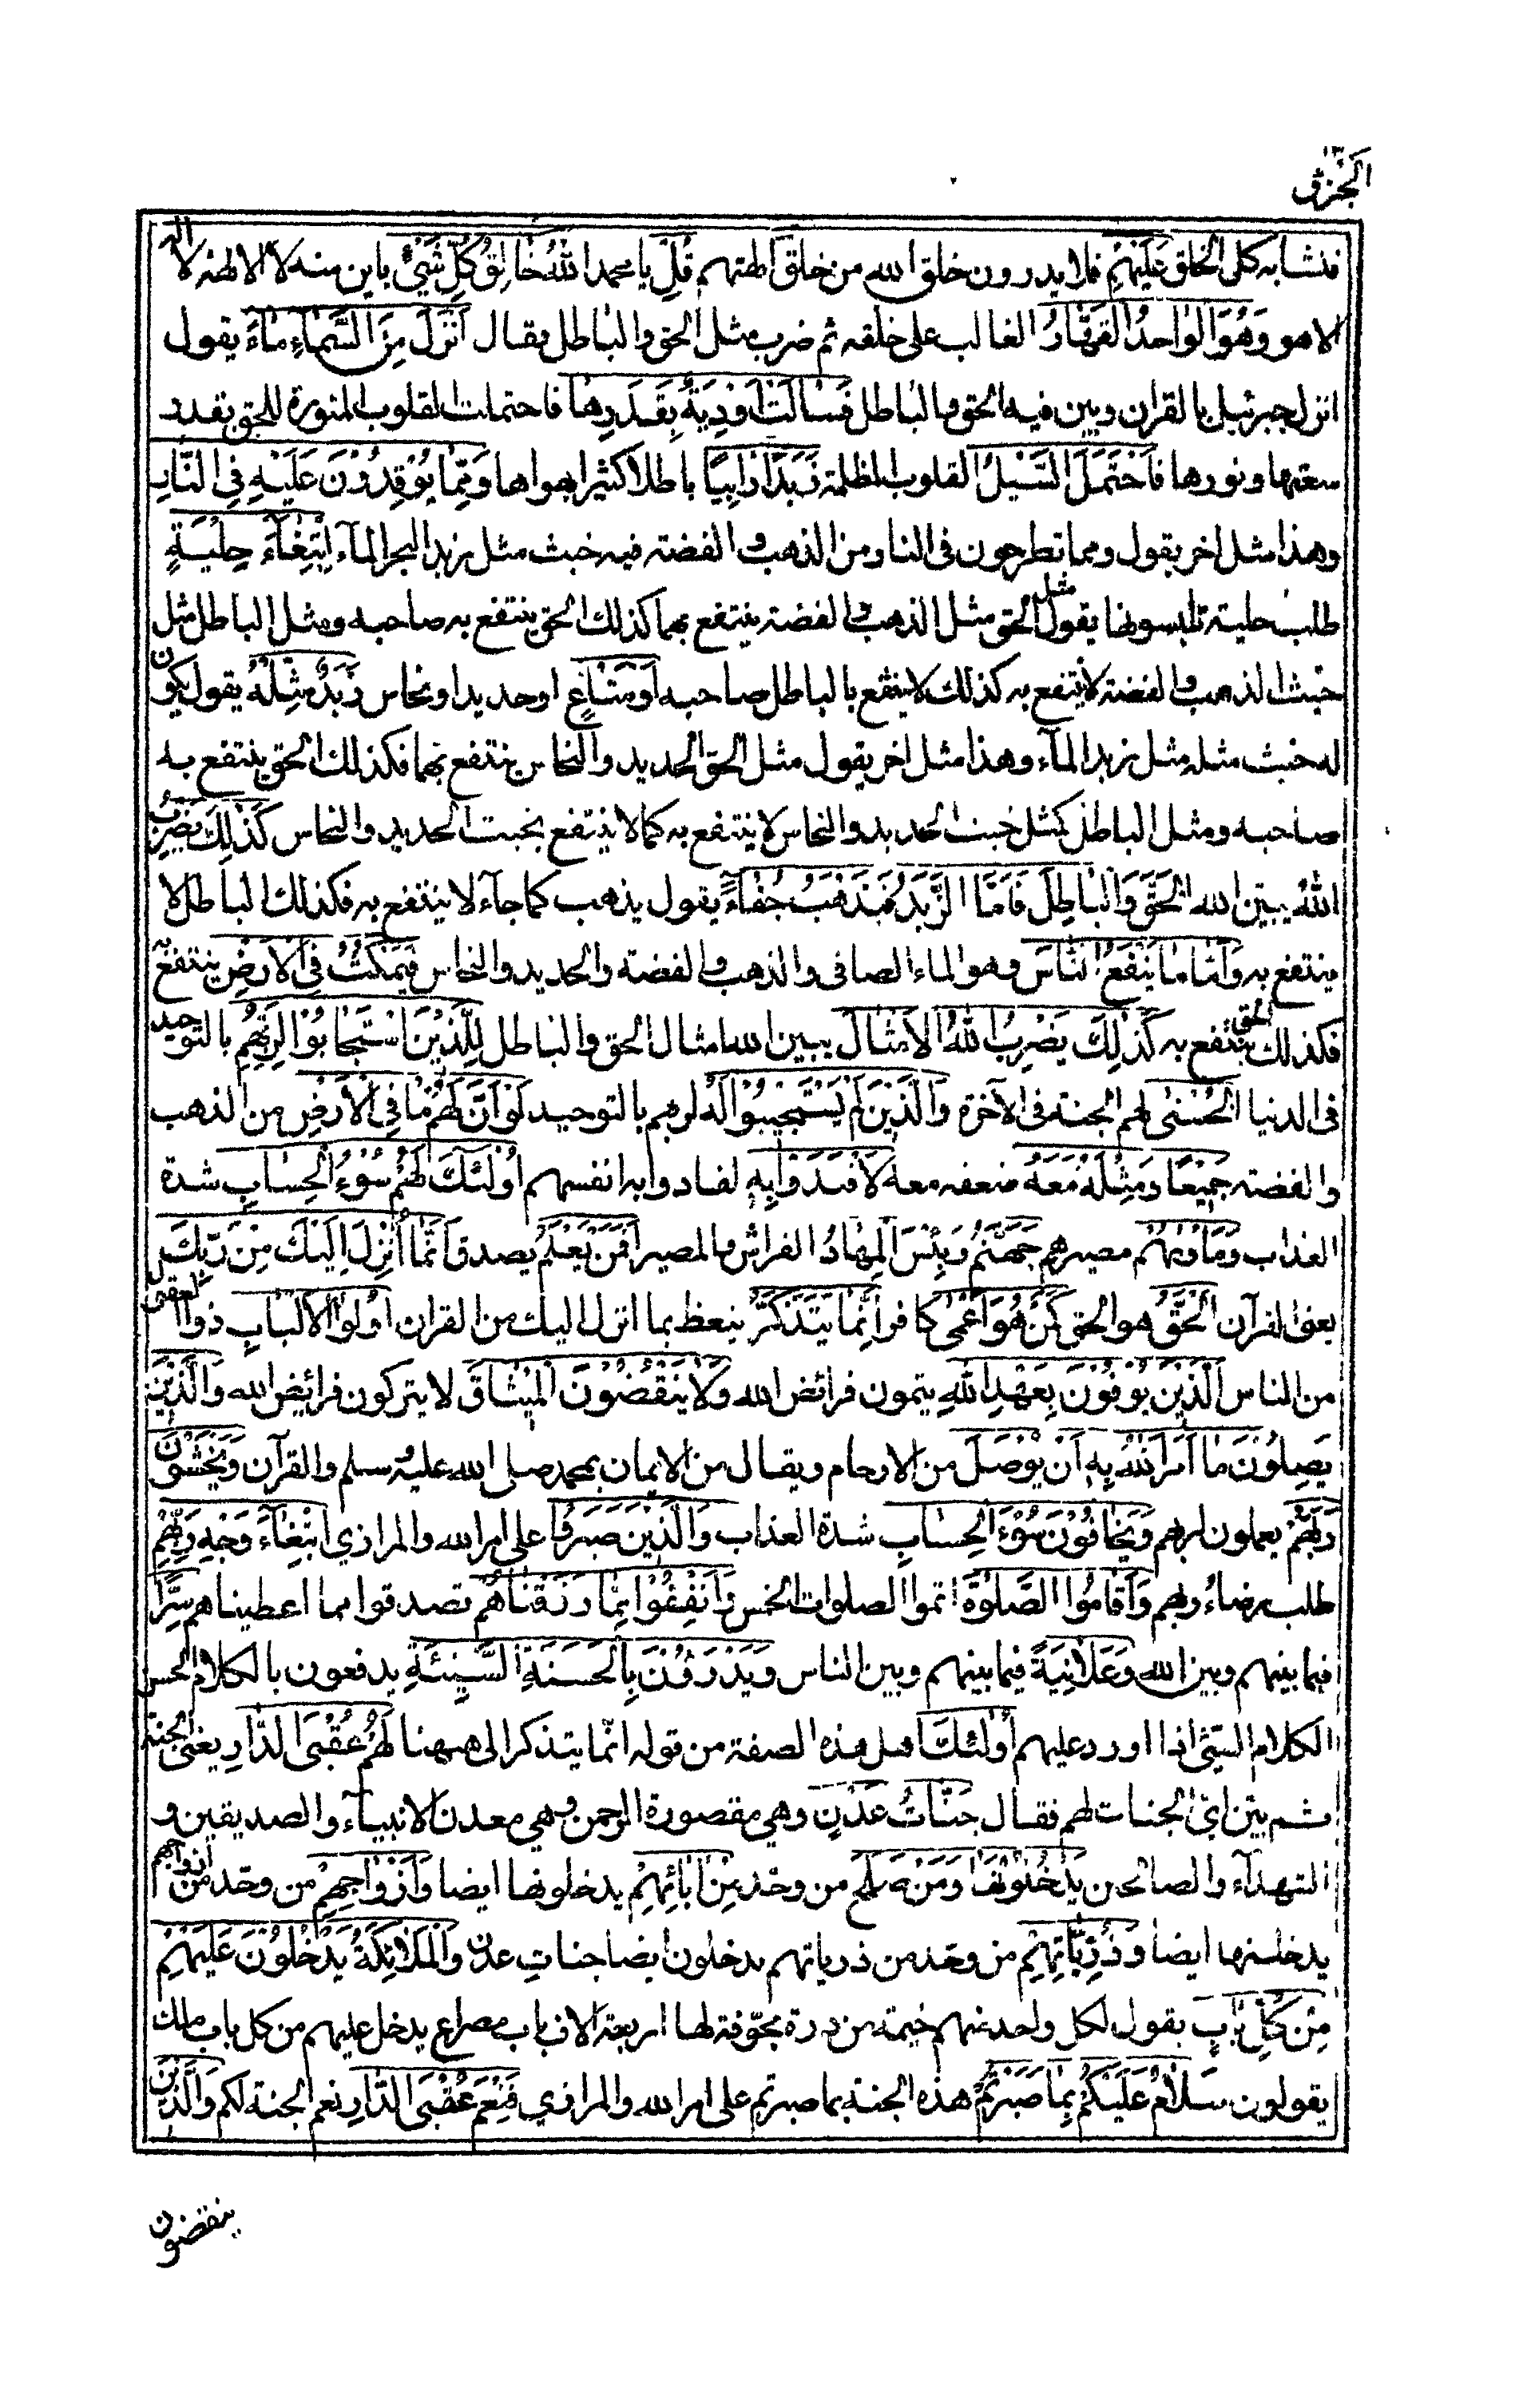 الجزء ١٣
فتشابه كل الخلق عَلَيْهِمْ فلا يدرون خلق الله من خلق آلهتهم قُلِ يا محمد اللهُ خَالِقُ كُلِّ شَيْءٍ باين منه لا الالهة لا اله
الا هو وَهُوَ الْوَاحِدُ الْقَهَّارُ الغالب على خلقه ثم ضرب مثل الحق والباطل فقال أَنْزَلَ مِنَ السَّمَاءِ مَاءً يقول
انزل جبرئيل بالقران وبين فيه الحق والباطل فَسَالَتْ أَوْدِيَةٌ بِقَدَرِهَا فاحتملت القلوب المنورة للحق بقدر
سعتها ونورها فَاحْتَمَلَ السَّيْلُ القلوب المظلمة زَبَدًا رَابِيًا باطلا كثيرا بهواها وَمِمَّا يُوْقِدُوْنَ عَلَيْهِ فِي النَّارِ
وهذا مثل اخر يقول ومما تطرحون فى النار من الذهب والفضة فيه خبث مثل زبد البحر المآء ابْتِغَآءَ حِلْيَةٍ
طلب حلية تلبسونها يقول مثل الحق مثل الذهب والفضة ينتفع بهما كذلك الحق ينتفع به صاحبه ومثل الباطل مثل
خبث الذهب والفضة لا ينتفع به كذلك لا ينتفع بالباطل صاحبه أَوْ مَتَاعٍ او حديد او نحاس زَبَدٌ مِثْلُهُ يقول يكون
له خبث مثله مثل زبد المآء وهذا مثل اخر يقول مثل الحق الحديد والنحاس ينتفع بهما فكذلك الحق ينتفع به
صاحبه ومثل الباطل كمثل خبث الحديد والنحاس لا ينتفع به كما لا ينتفع بخبث الحديد والنحاس كَذٰلِكَ يَضْرِبُ
اللهُ يبين الله الْحَقَّ وَالْبَاطِلَ فَأَمَّا الزَّبَدُ فَيَذْهَبُ جُفَآءً يقول يذهب كما جآء لا ينتفع به فكذلك الباطل لا
ينتفع به وَأَمَّا مَا يَنْفَعُ النَّاسَ وهو الماء الصافى والذهب والفضة والحديد والنحاس فَيَمْكُثُ فِي الْاَرْضِ ينتفع به
فكذلك الحق ينتفع به كَذٰلِكَ يَضْرِبُ اللهُ الْاَمْثَالَ يبين الله امثال الحق والباطل لِلَّذِيْنَ اسْتَجَابُوْا لِرَبِّهِمُ بالتوحيد
فى الدنيا الْحُسْنٰى لهم الجنة فى الآخرة وَالَّذِيْنَ لَمْ يَسْتَجِيبُوْا لَهُ لربهم بالتوحيد لَوْ اَنَّ لَهُمْ مَا فِي الْاَرْضِ من الذهب
والفضة جَمِيْعًا وَمِثْلَهُ مَعَهُ ضعفه معه لَافْتَدَوْا بِهِ لفادوا به انفسهم أُولٰئِكَ لَهُمْ سُوْءُ الْحِسَابِ شدة
العذاب وَمَأْوٰىهُمْ مصيرهم جَهَنَّمُ وَبِئْسَ الْمِهَادُ الفراش والمصير اَفَمَنْ يَعْلَمُ يصدق اَنَّمَا اُنْزِلَ اِلَيْكَ مِنْ رَبِّكَ
يعنى القرآن الْحَقُّ هو الحق كَمَنْ هُوَ اَعْمٰى كافر اِنَّمَا يَتَذَكَّرُ يتعظ بما انزل اليك من القران اُولُوا الْاَلْبَابِ ذووا العقول
من الناس الَّذِيْنَ يُوْفُوْنَ بِعَهْدِ اللهِ يتمون فرائض الله وَلَا يَنْقُضُوْنَ الْمِيْثَاقَ لا يتركون فرائض الله وَالَّذِيْنَ
يَصِلُوْنَ مَا اَمَرَ اللهُ بِهِ اَنْ يُوْصَلَ من الارحام ويقال من الايمان بمحمد صلى الله عليه وسلم والقرآن وَيَخْشَوْنَ
رَبَّهُمْ يعملون لربهم وَيَخَافُوْنَ سُوْءَ الْحِسَابِ شدة العذاب وَالَّذِيْنَ صَبَرُوا على امر الله والمرازي ابْتِغَآءَ وَجْهِ رَبِّهِمْ
طلب رضاء ربهم وَاَقَامُوا الصَّلٰوةَ اتموا الصلوات الخمس وَاَنْفَقُوْا مِمَّا رَزَقْنَاهُمْ تصدقوا مما اعطيناهم سِرًّا
فيما بينهم وبين الله وَعَلَانِيَةً فيما بينهم وبين الناس وَيَدْرَؤُنَ بِالْحَسَنَةِ السَّيِّئَةِ يدفعون بالكلام الحسن
الكلام السيّئ اذا اورد عليهم اُولٰئِكَ اهل هذه الصفة من قوله انما يتذكر الى ههنا لَهُمْ عُقْبَى الدَّارِ يعنى الجنة
ثم بين اىّ الجنات لهم فقال جَنَّاتُ عَدْنٍ وهي مقصورة الرحمن وهي معدن الانبيآء والصديقين و
الشهدآء والصالحين يَدْخُلُوْنَهَا وَمَنْ صَلَحَ من وحد مِنْ اٰبَائِهِمْ يدخلونها ايضا وَاَزْوَاجِهِمْ من وحد من ازواجهم
يدخلنها ايضا وَذُرِّيَّاتِهِمْ من وحد من ذرياتهم يدخلون ايضا جنات عدن وَالْمَلَائِكَةُ يَدْخُلُوْنَ عَلَيْهِمْ
مِنْ كُلِّ بَابٍ يقول لكل واحد منهم خيمة من درة مجوّفة لها اربعة الاف باب مصراع يدخل عليهم من كل باب ملك
يقولون سَلَامٌ عَلَيْكُمْ بِمَا صَبَرْتُمْ هذه الجنة بما صبرتم على امر الله والمرازي فَنِعْمَ عُقْبَى الدَّارِ نعم الجنة لكم وَالَّذِيْنَ
ينقضون